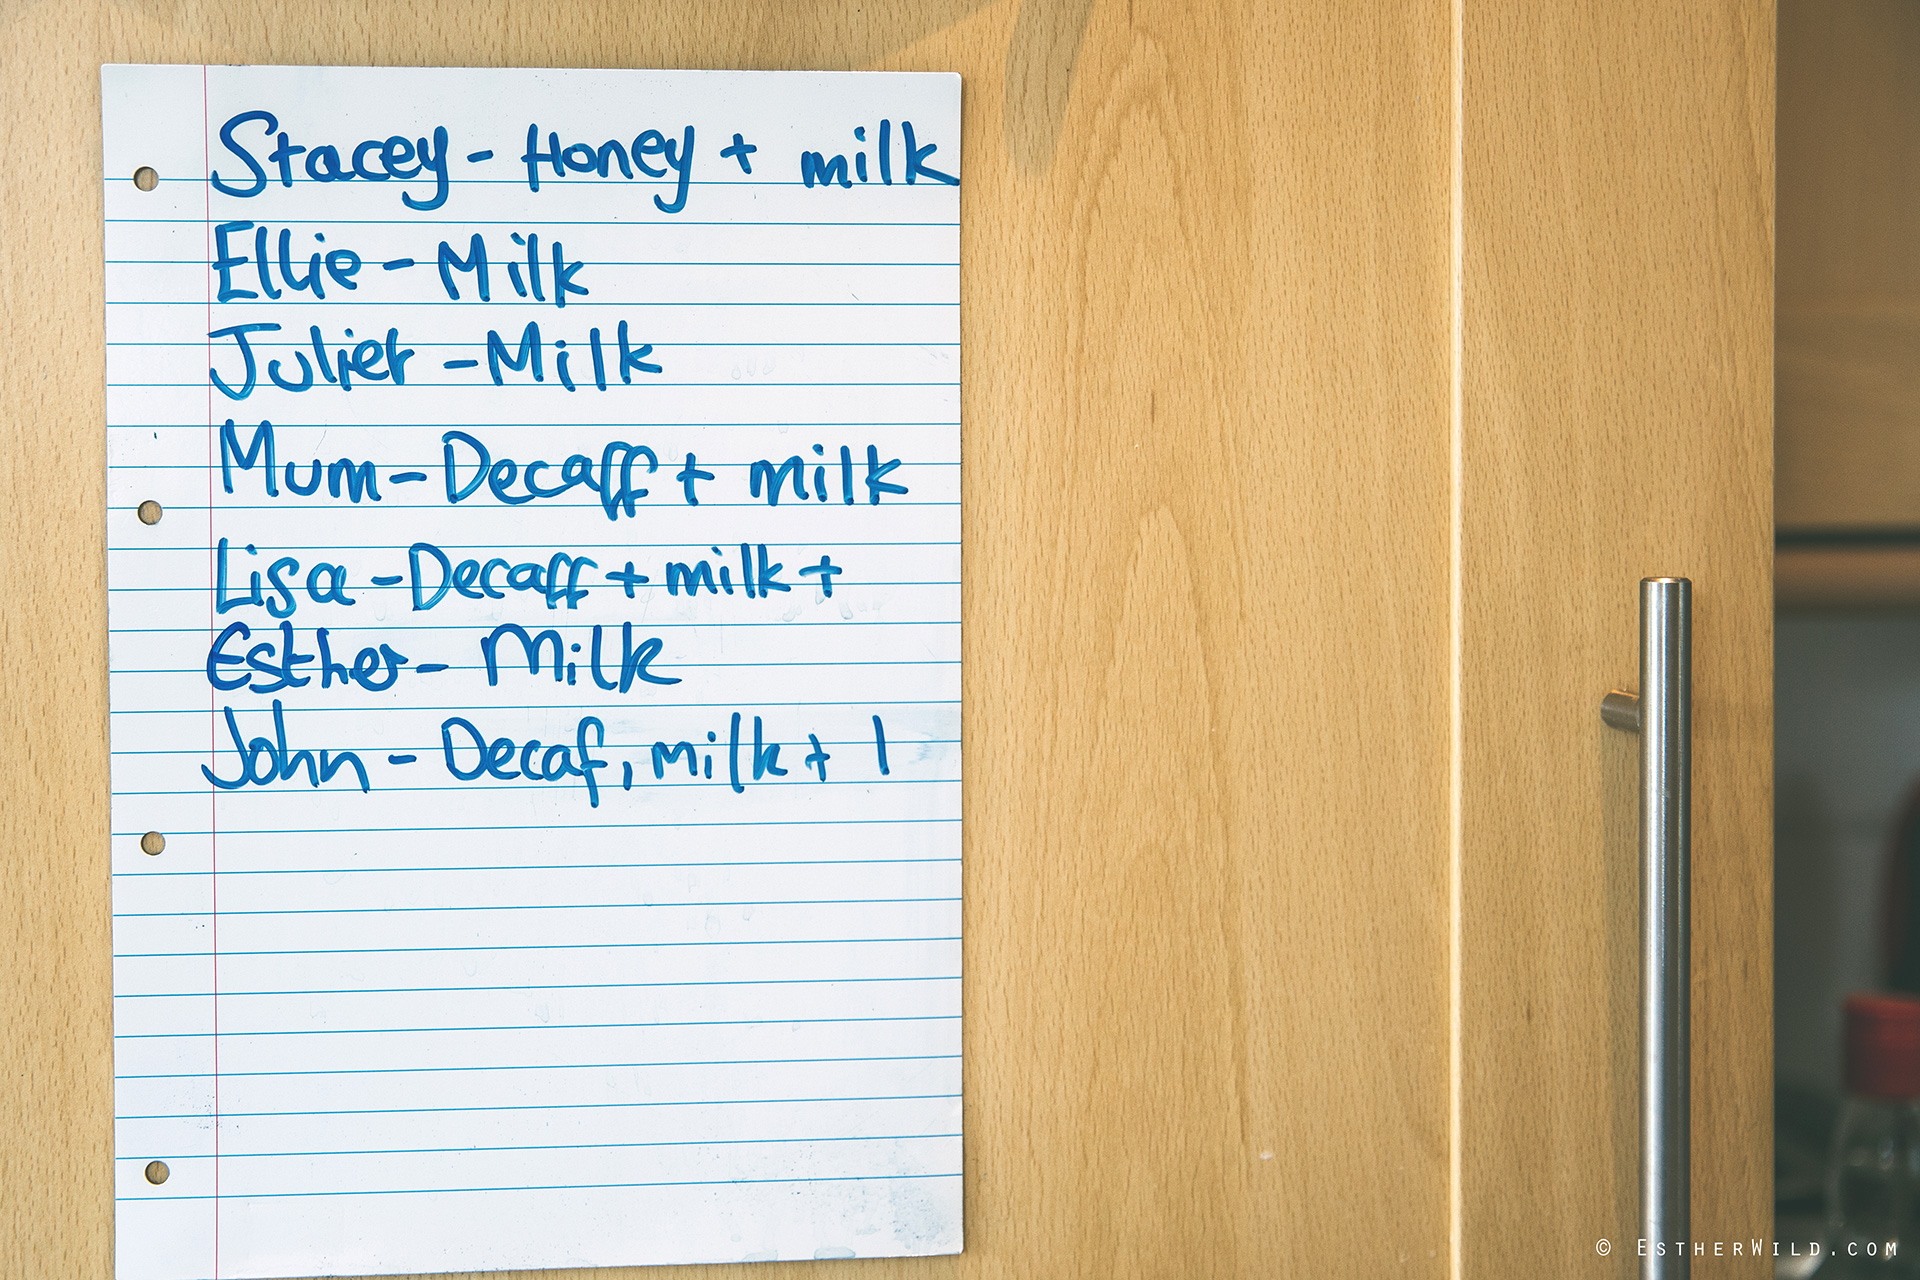 Stacey - Honey + milk
Ellie - Milk
Juliet - Milk
Mum - Decaff + milk
Lisa - Decaff + milk +
Esther - Milk
John - Decaf, milk + 1
© ESTHERWILD.COM